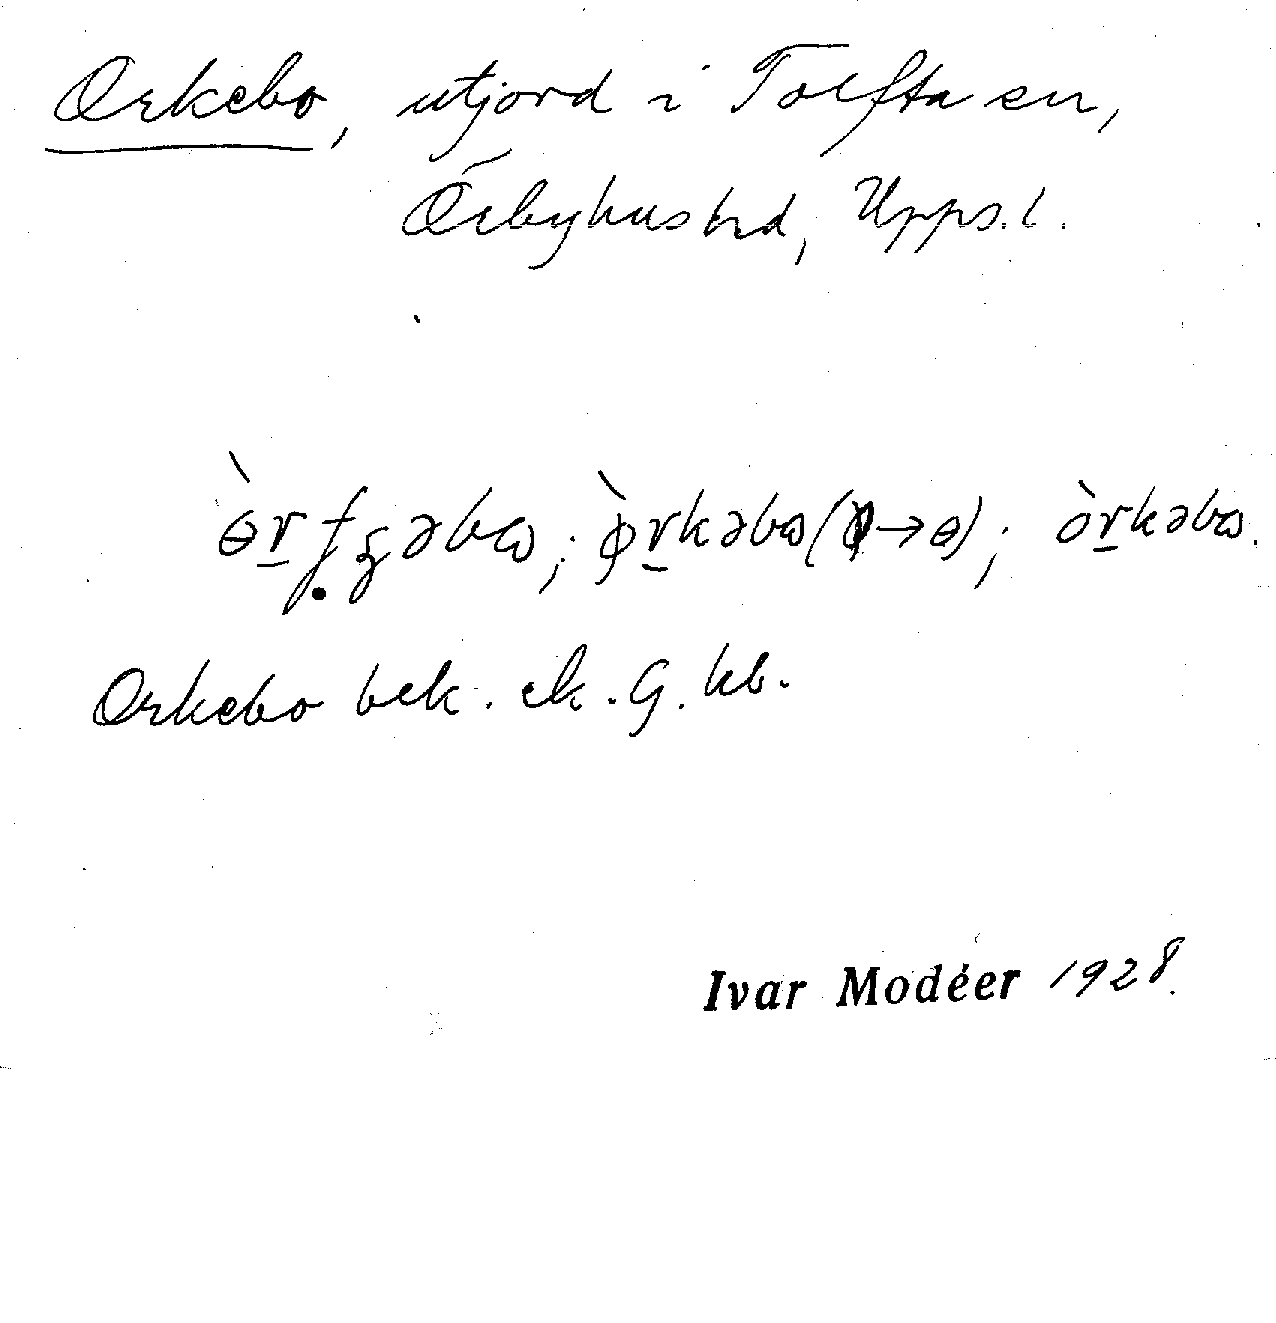 Orkebo, utjord i Tolfta sn,
Örbyhus hd, Upps. l.
; ; òrkəbɷ.
Orkebo bek. ek. G. kb.
Ivar Modéer 1928.